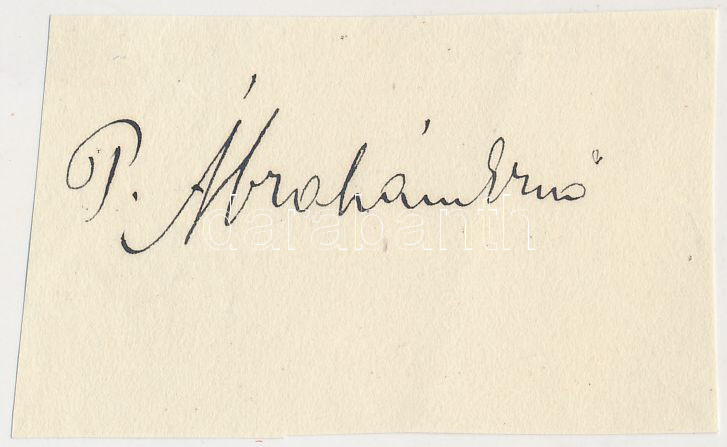 P. Ábrahám Ernő
darabanth